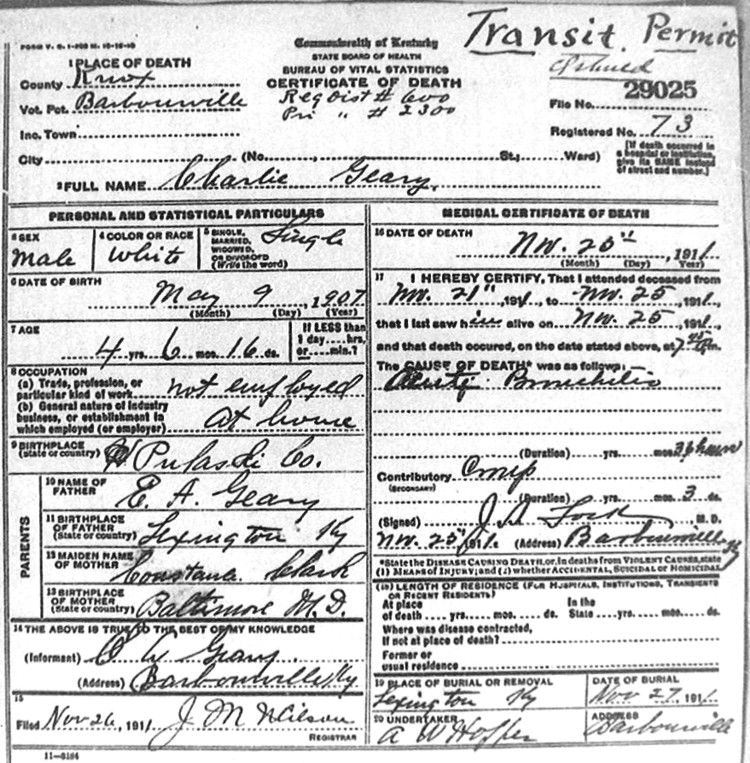 FORM V. S. 1-
Transit Permit
Commonwealth of Kentucky
STATE BOARD OF HEALTH
BUREAU OF VITAL STATISTICS
CERTIFICATE OF DEATH
Reg Dist # 600
Pri " # 2300
29025
File No.
Registered No. 73
[If death occurred in a hospital or institution, give its NAME instead of street and number.]
1 PLACE OF DEATH
County Knox
Vot. Pct. Barbourville
Inc. Town
City (No. St.; Ward)
2 FULL NAME Charlie Geary.
PERSONAL AND STATISTICAL PARTICULARS
3 SEX
Male
4 COLOR OR RACE
White
5 SINGLE, MARRIED, WIDOWED OR DIVORCED (Write the word)
Single
6 DATE OF BIRTH
May 9, 1907
(Month) (Day) (Year)
7 AGE
4 yrs. 6 mos. 16 ds.
If LESS than 1 day.....hrs. or.....min.?
8 OCCUPATION
(a) Trade, profession, or particular kind of work not employed
(b) General nature of industry business, or establishment in which employed (or employer) At home
9 BIRTHPLACE
(State or country) Pulaski Co.
PARENTS
10 NAME OF FATHER E. A. Geary
11 BIRTHPLACE OF FATHER (State or country) Lexington Ky
12 MAIDEN NAME OF MOTHER Clark
13 BIRTHPLACE OF MOTHER (State or country) Baltimore M.D.
14 THE ABOVE IS TRUE TO THE BEST OF MY KNOWLEDGE
(Informant) Geary.
(Address) Barbourville Ky
15
Filed Nov 26, 1911 J. M. Wilson
REGISTRAR
11-
MEDICAL CERTIFICATE OF DEATH
16 DATE OF DEATH
Nov. 25", 1911
(Month) (Day) (Year)
17 I HEREBY CERTIFY, That I attended deceased from
Nov. 21", 1911, to Nov. 25, 1911,
that I last saw him alive on Nov. 25, 1911,
and that death occured, on the date stated above, at 7 45 Pm.
The CAUSE OF DEATH* was as follows:
Bronchitis
(Duration) yrs. mos.
Contributory Croup
(SECONDARY)
(Duration) yrs. mos. 3 ds.
(Signed) M. D.
Nov. 25", 1911 (Address) Barbourville Ky
*State the DISEASE CAUSING DEATH, or, in deaths from VIOLENT CAUSES, state
(1) MEANS OF INJURY; and (2) whether ACCIDENTAL, SUICIDAL or HOMICIDAL.
(18) LENGTH OF RESIDENCE (FOR HOSPITALS, INSTITUTIONS, TRANSIENTS
OR RECENT RESIDENTS)
At place of death yrs. mos. ds. In the State yrs. mos. ds.
Where was disease contracted,
If not at place of death?
Former or
usual residence
19 PLACE OF BURIAL OR REMOVAL
Lexington Ky
DATE OF BURIAL
Nov 27, 1911
20 UNDERTAKER
A W Hopper
ADDRESS
Barbourville